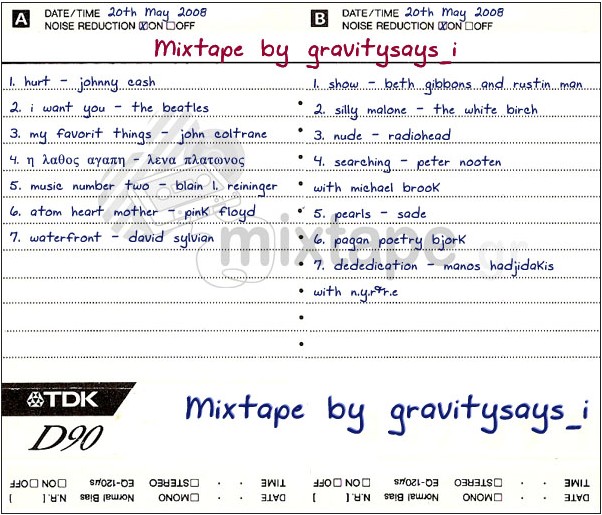 A DATE/TIME 20th May 2008
NOISE REDUCTION ☒ON ☐OFF
B DATE/TIME 20th May 2008
NOISE REDUCTION ☒ON ☐OFF
Mixtape by gravitysays_i
1. hurt - johnny cash
2. i want you - the beatles
3. my favorit things - john coltrane
4. η λαθος αγαπη - λενα πλατωνος
5. music number two - blain l. reininger
6. atom heart mother - pink floyd
7. waterfront - david sylvian
1. show - beth gibbons and rustin man
2. silly malone - the white birch
3. nude - radiohead
4. searching - peter nooten
with michael brook
5. pearls - sade
6. pagan poetry bjork
7. dededication - manos hadjidakis
with n.y.r&r.e
mixtape.gr
TDK
D90
Mixtape by gravitysays_i
DATE TIME
N.R. [ ] ☐ON ☐OFF
Normal Bias EQ-120µs
☐MONO ☐STEREO
DATE TIME
N.R. [ ] ☐ON ☐OFF
Normal Bias EQ-120µs
☐MONO ☐STEREO